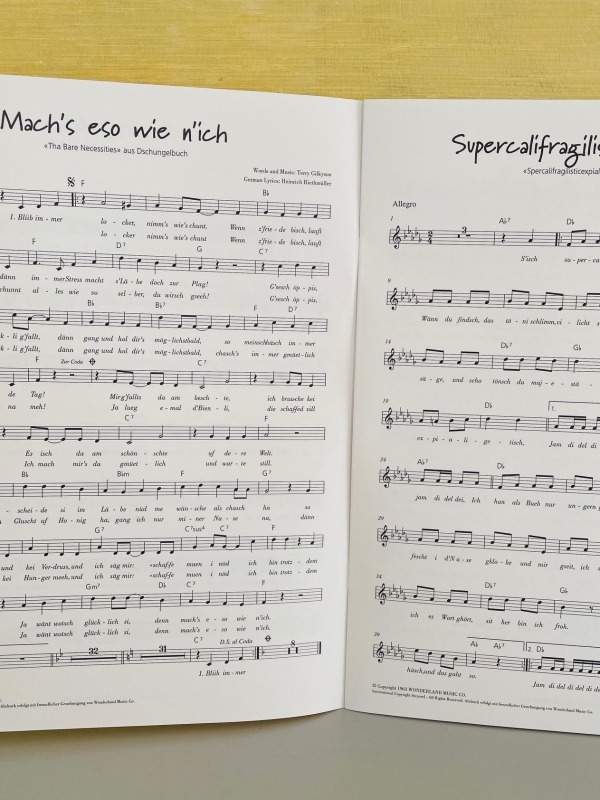 Mach's eso wie n'ich
«Tha Bare Necessities» aus Dschungelbuch
Words and Music: Terry Gilkyson
German Lyrics: Heinrich Riethmüller
F B♭
1. Bliib im-mer lo-cker, nimm's wie's chunt. Wenn z'frie-de bisch, lauft
lo-cker, nimm's wie's chunt Wenn z'frie-de bisch, lauft
F D7 G C7
dänn im-mer Stress macht s'Lä-be doch zur Plag! G'sesch öp-pis,
chunnt al-les wie so sel-ber, du wirsch gseeh! G'sesch öp-pis,
B♭ B♭7 F D7
k-li g'fallt, dänn gang und hol dir's mög-lichstbald, so meinschhäsch im-mer
k-li g'fallt, dänn gang und hol dir's mög-lichstbald, chasch's im-mer gmüet-lich
F Zur Coda C7
de Tag! Mir g'fallts da am besch-te, ich bruuche kei
na meh! Ja lueg e-mal d'Bien-li, die schaffed vill
C7 F
Es isch da am schön-schte uf de-re Welt.
Ich mach mir's da gmüet-lich und war-te still.
B♭ B♭m F G7
-schei-de si im Lä-be näd me wün-sche als chasch ha so
Gluscht uf Ho-nig ha, gang ich nur mi-ner Na-se na, dänn
G7 C7sus4 C7 F
und kei Ver-druss, und ich säg mir: «schaffe muen i näd ich bin trotz-dem
kei Hun-ger meeh, und ich säg mir: «schaffe muen i näd ich bin trotz-dem
Gm7 D♭ C7 F
Ja wänt wotsch glück-lich si, denn mach's e-so wie n'ich.
Ja wänt wotsch glück-lich si, denn mach's e-so wie n'ich.
C7 D.S. al Coda
32 31 8
1. Bliib im-mer
Abdruck erfolgt mit freundlicher Genehmigung von Wonderland Music Co.
Supercalifragilis
«Spercalifragilisticexpial
Allegro
1 A♭7 D♭
3
S'isch su-per-ca-
9
Wänn du findsch, das tö-ni schlimm, vi-licht s
14 A♭7 D♭
sä-ge, und scho tönsch du ma-je-stä-
19 D♭ 1.
ex-pi-a-li-ge-tisch, Jam di del di
24 A♭7 D♭
jam di del dei, Ich han als Bueb nur un-gern g
29
fescht i d'Na-se ghlobe und mir gseit, ich s
34 D♭7 G♭
ich es Wort ghört, sit her bin ich froh.
39 A♭ A♭7 2. D♭
häsch, und das gaht so. Jam di del di del di de
© Copyright 1963 WONDERLAND MUSIC CO.
International Copyright Secured - All Rights Reserved. Abdruck erfolgt mit freundlicher Genehmigung von Wonderland Music Co.